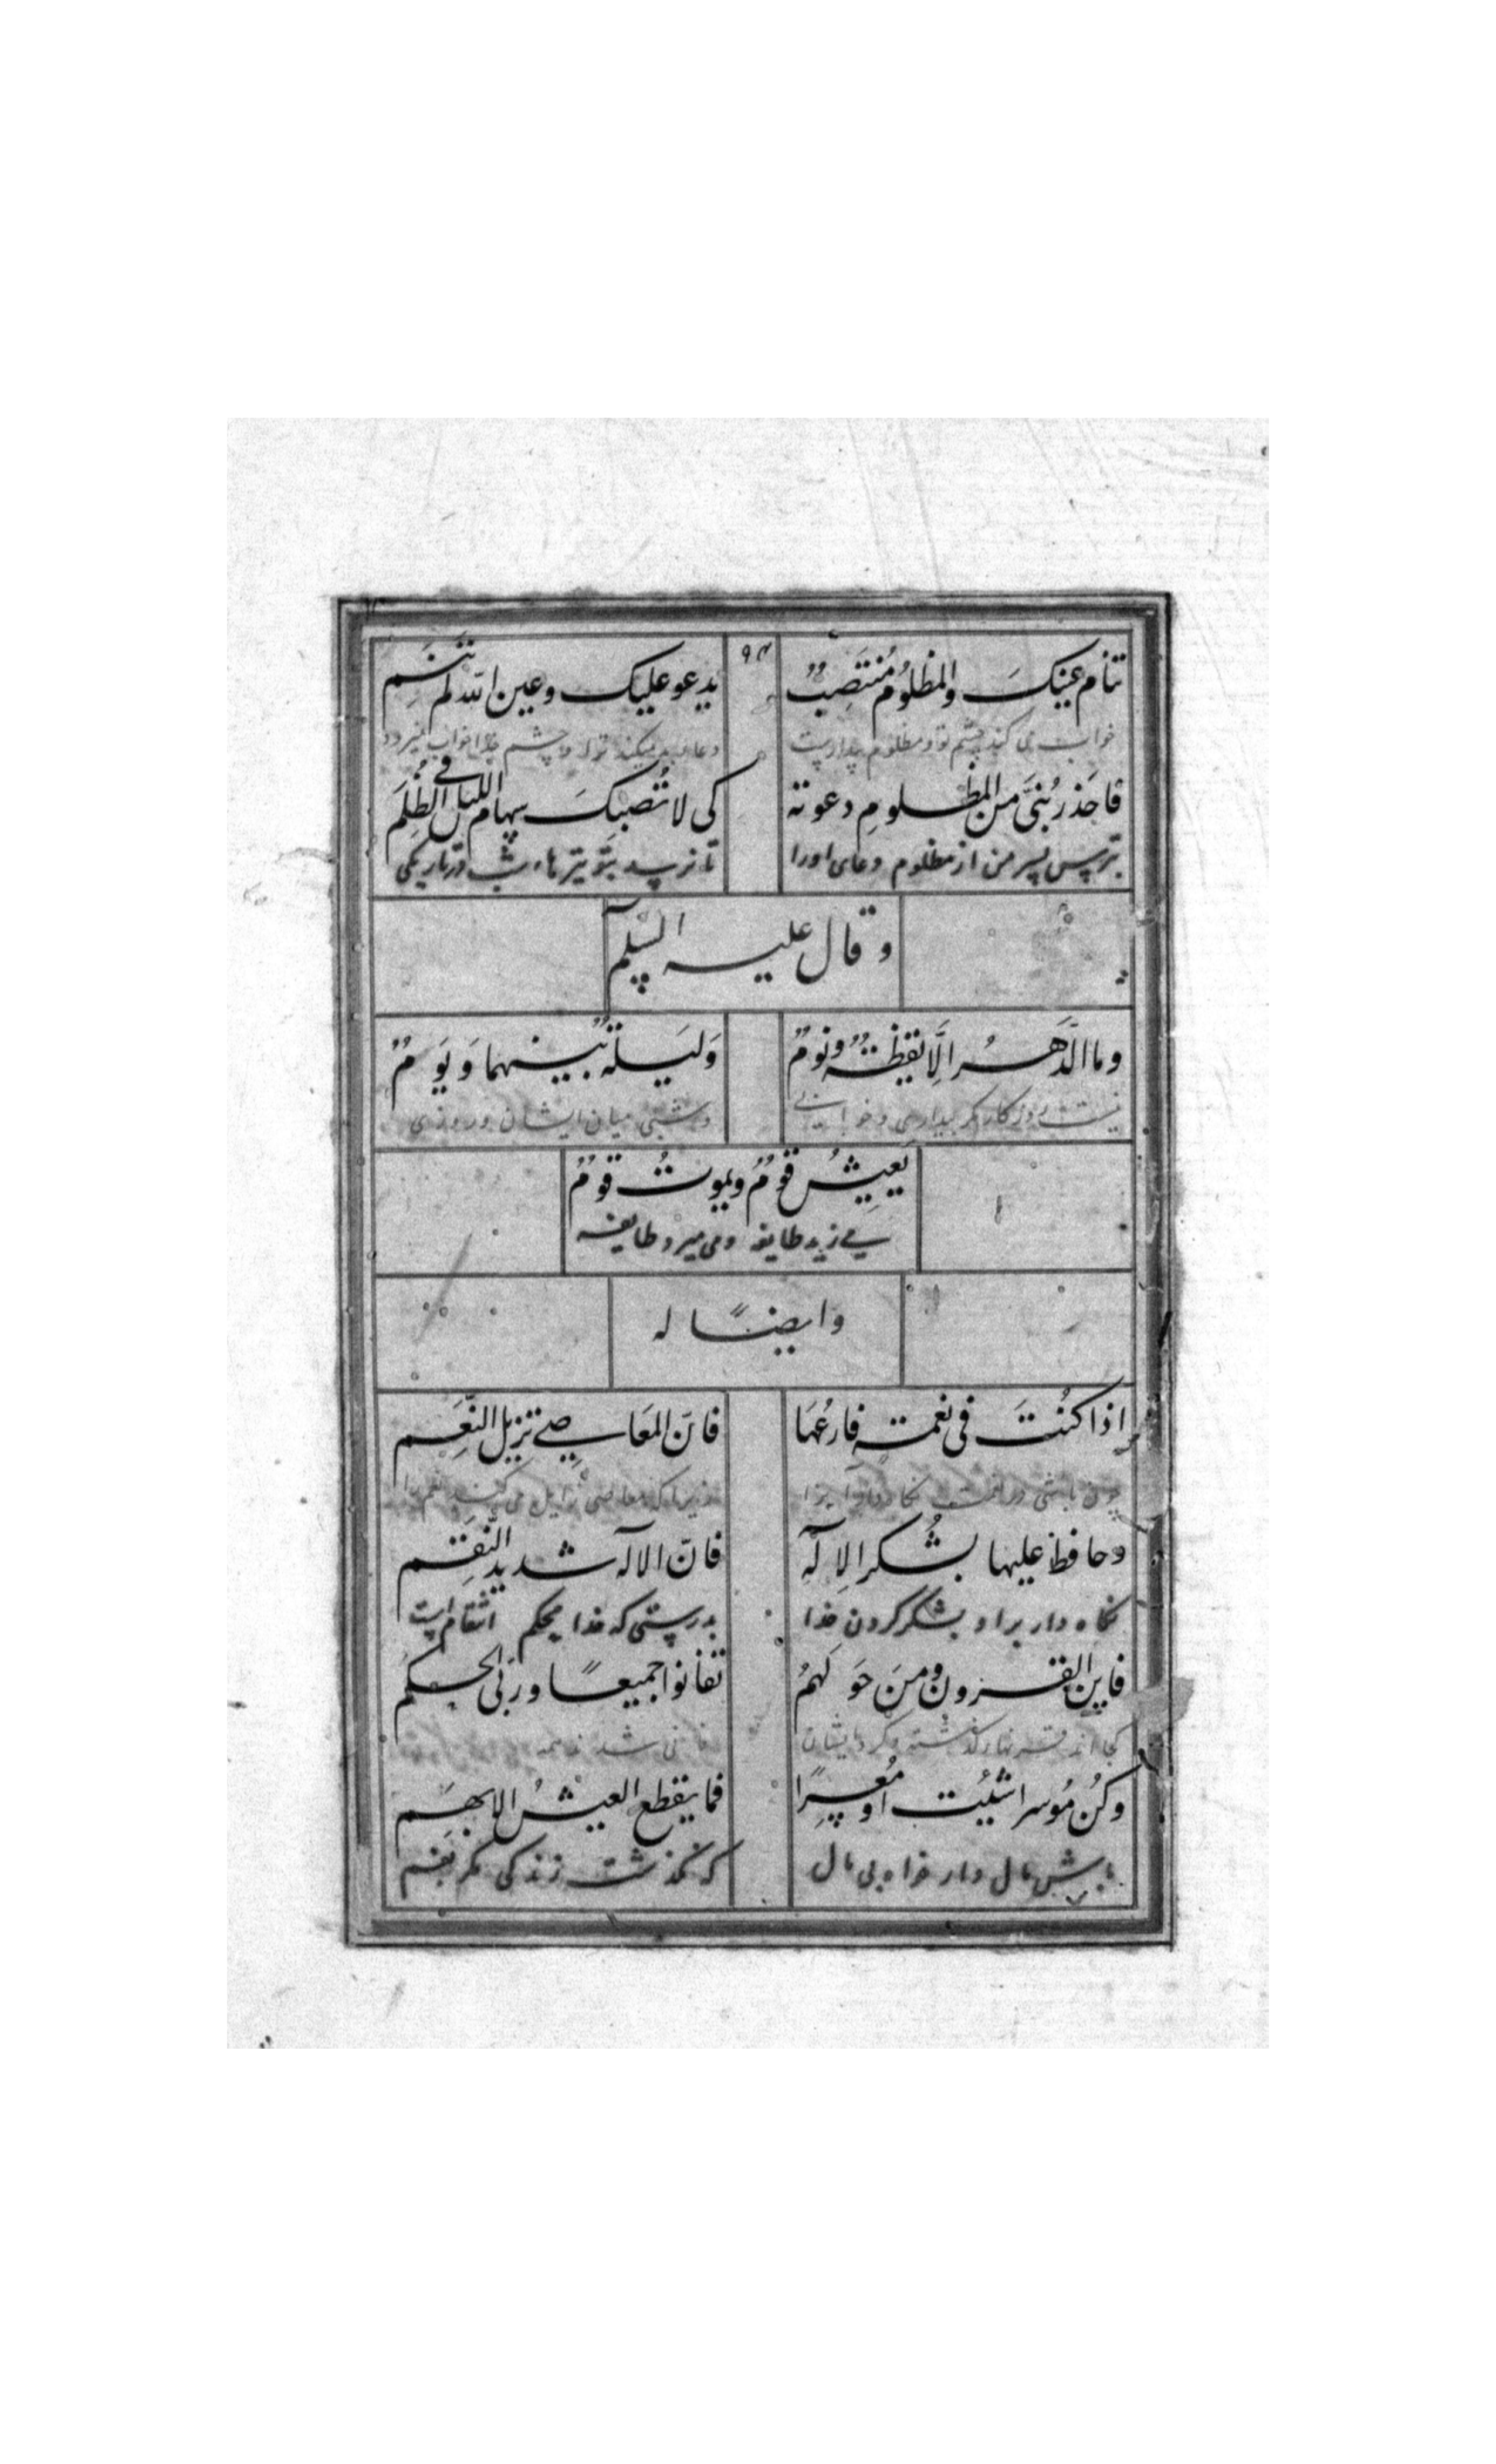 تنام عینکَ والمظلُومُ مُنتَصِبٌ یدعو علیک وعین الله لم تَنَمِ
خواب می کند چشم تو و مظلوم بیدارست دعاء بد میکند ترا و چشم خدا خواب نمیرود
فاحذر بُنَیَّ من المظلومِ دعوته کی لا تُصبکَ سهام اللیل فی الظُلَمِ
بترس پسر من از مظلوم دعای اورا تا نرسد بتو تیرهاء شب در تاریکی
وقال علیه السلم
وما الدَّهرُ الَّا یقظةٌ ونومٌ وَلیلةٌ بینهما وَیَومٌ
نیست روزکار مکر بیداری و خوابی وشبی میان ایشان و روزی
یَعیشُ قومٌ ویموتُ قومٌ
می زید طایفه و می میرد طایفه
وایضًا له
اذا کُنتَ فی نعمة فارعُهَا فانّ المعَاصِی تزیل النِّعَم
چون باشی در نعمت نکاه دار آنرا زیرا که معاصی زایل می کند نعم را
وحافظ علیها بشُکر الاِلٰه فانّ الاله شدید النِّقَم
نکاه دار براو بشکر کردن خدا بدرستی که خدا محکم انتقام است
فاین القرون ومنَ حَولَهمُ تفانوا جمیعًا وربّی الحکم
کجا اند قرنهاء کذشته و کرد ایشان فانی شدند همه
وکُن مُوسرا شئت او مُعسِرًا فما ینقطع العیشُ الا بهَم
باش مال دار خواه بی مال که نکذشت زندکی مکر بغم